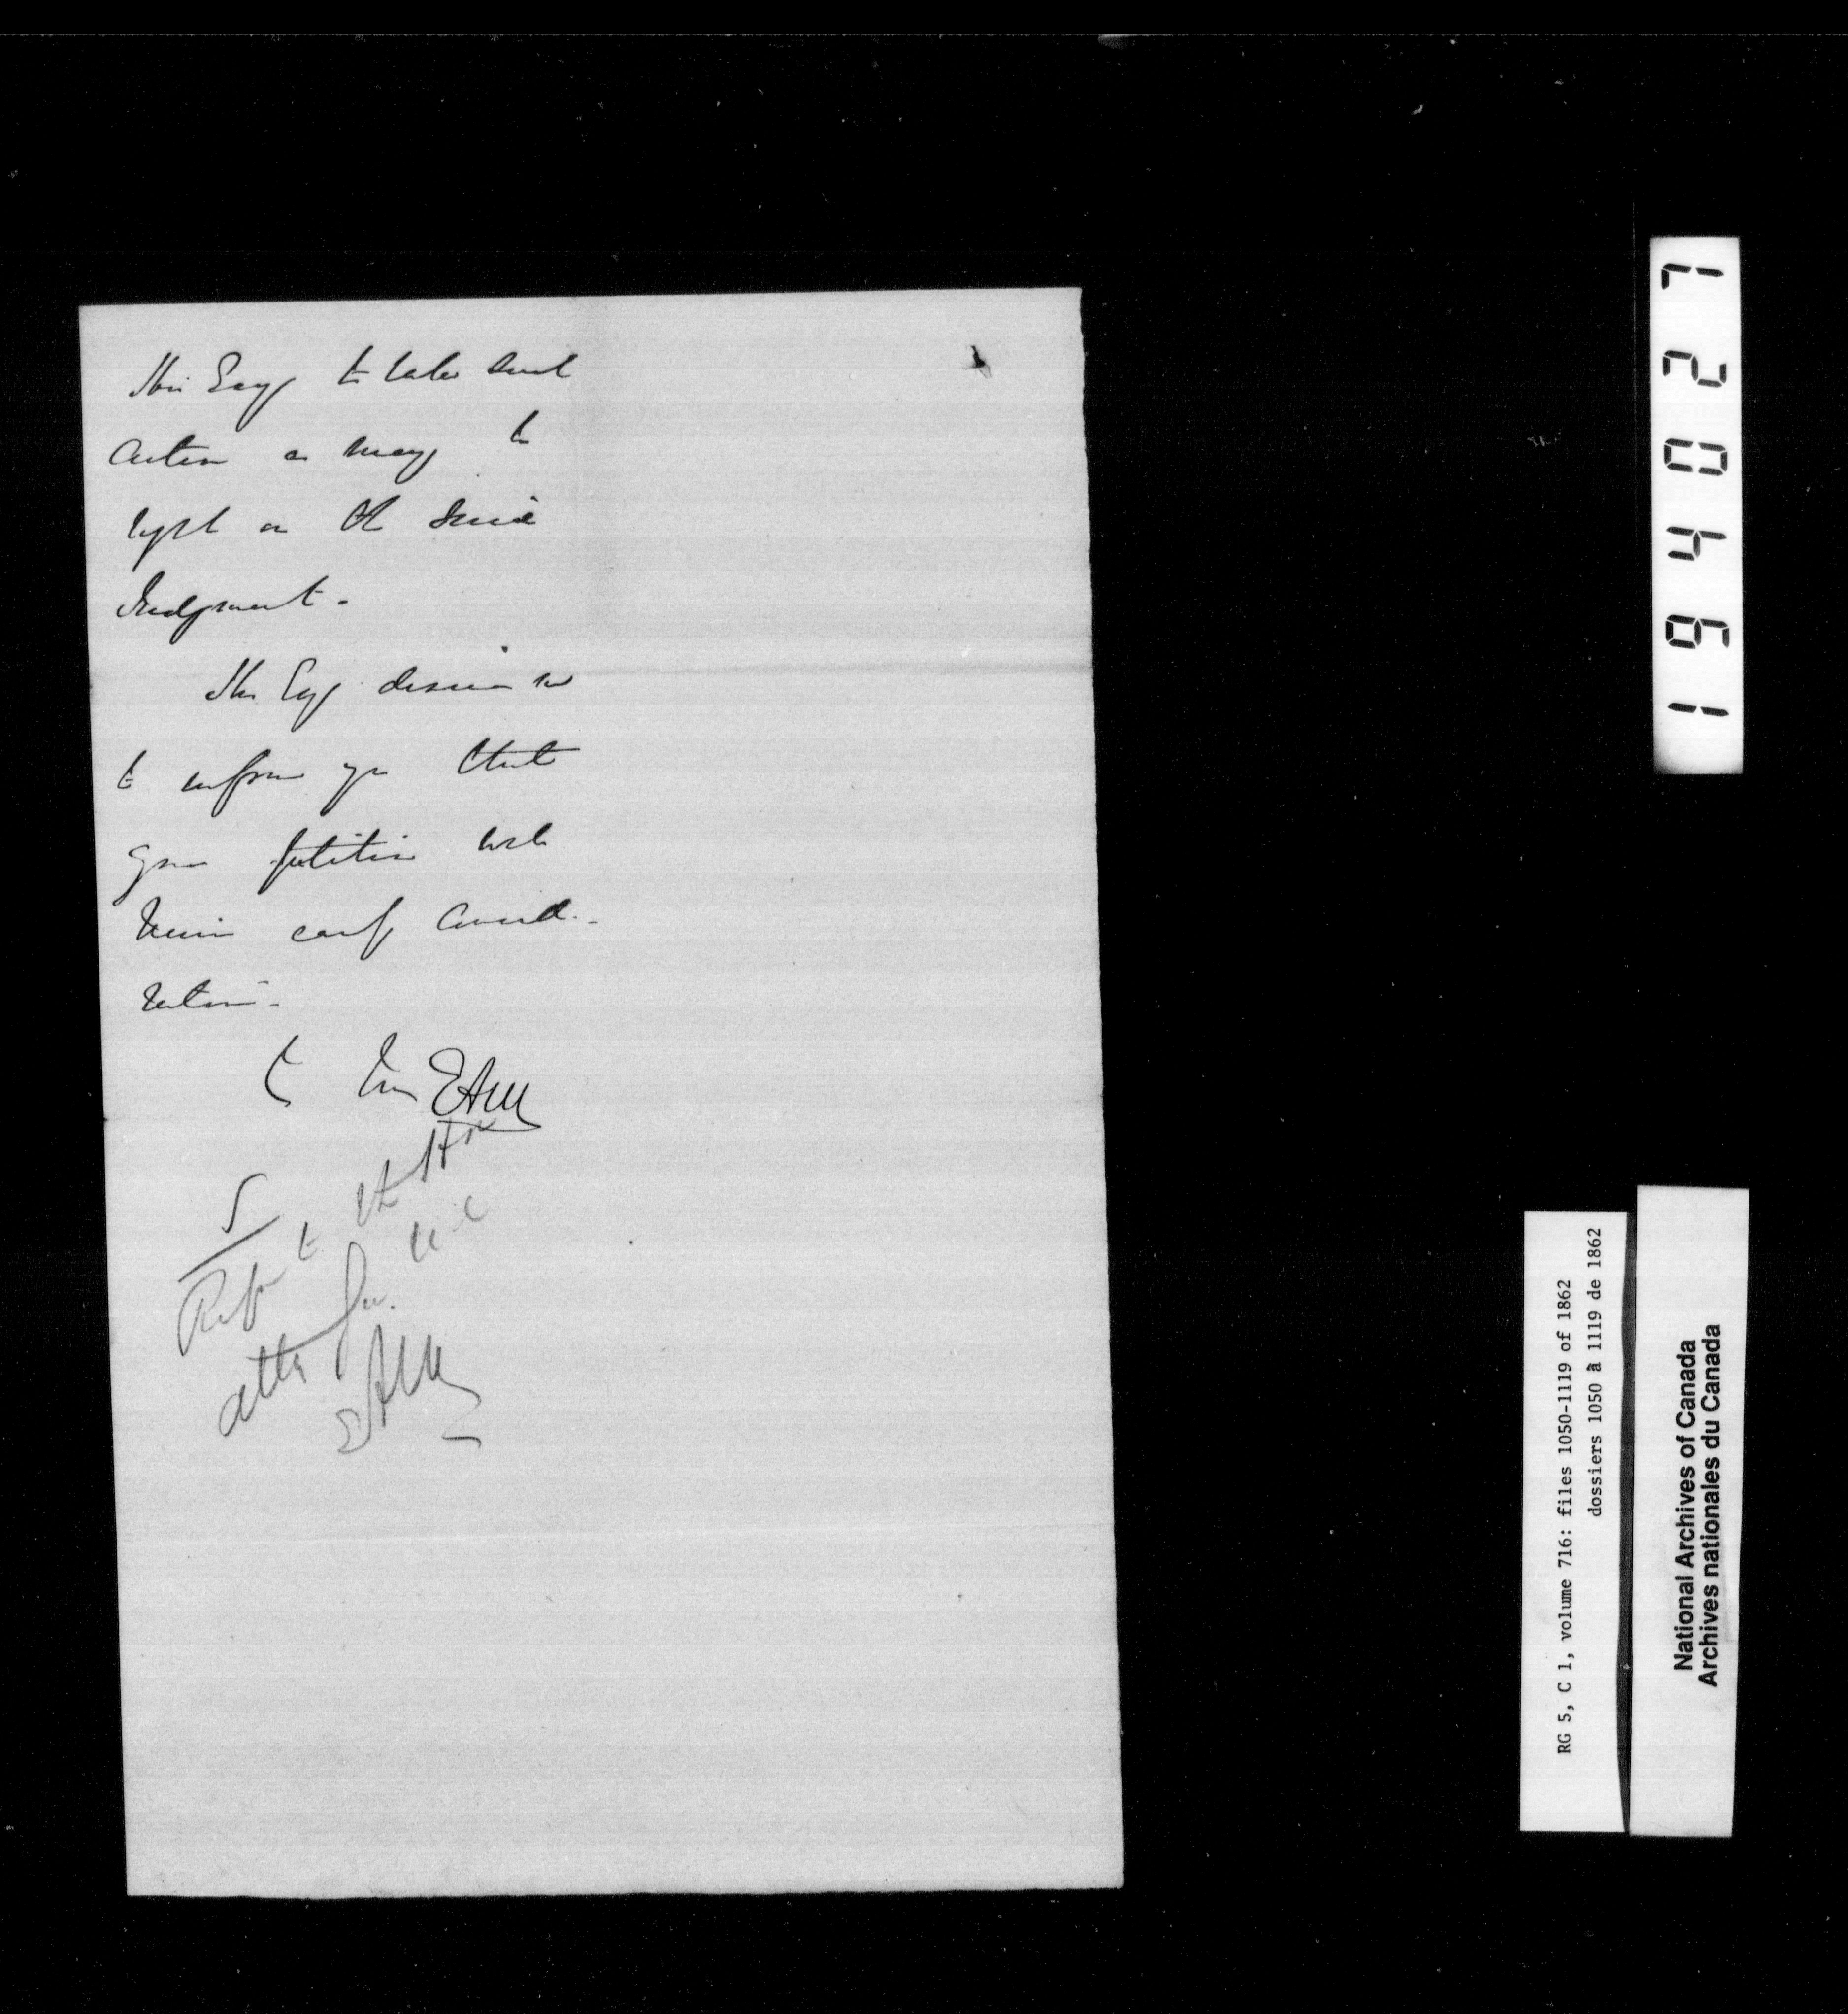 His Excy to take such
action as may be
right on the said
Judgment.
His Excy desires me
to inform you that
your petition will
receive careful consid-
eration.
EAM
Refer to the Hon
Atty Gen. U.C
EAM
194027
RG 5, C 1, volume 716: files 1050-1119 of 1862
dossiers 1050 à 1119 de 1862
National Archives of Canada
Archives nationales du Canada